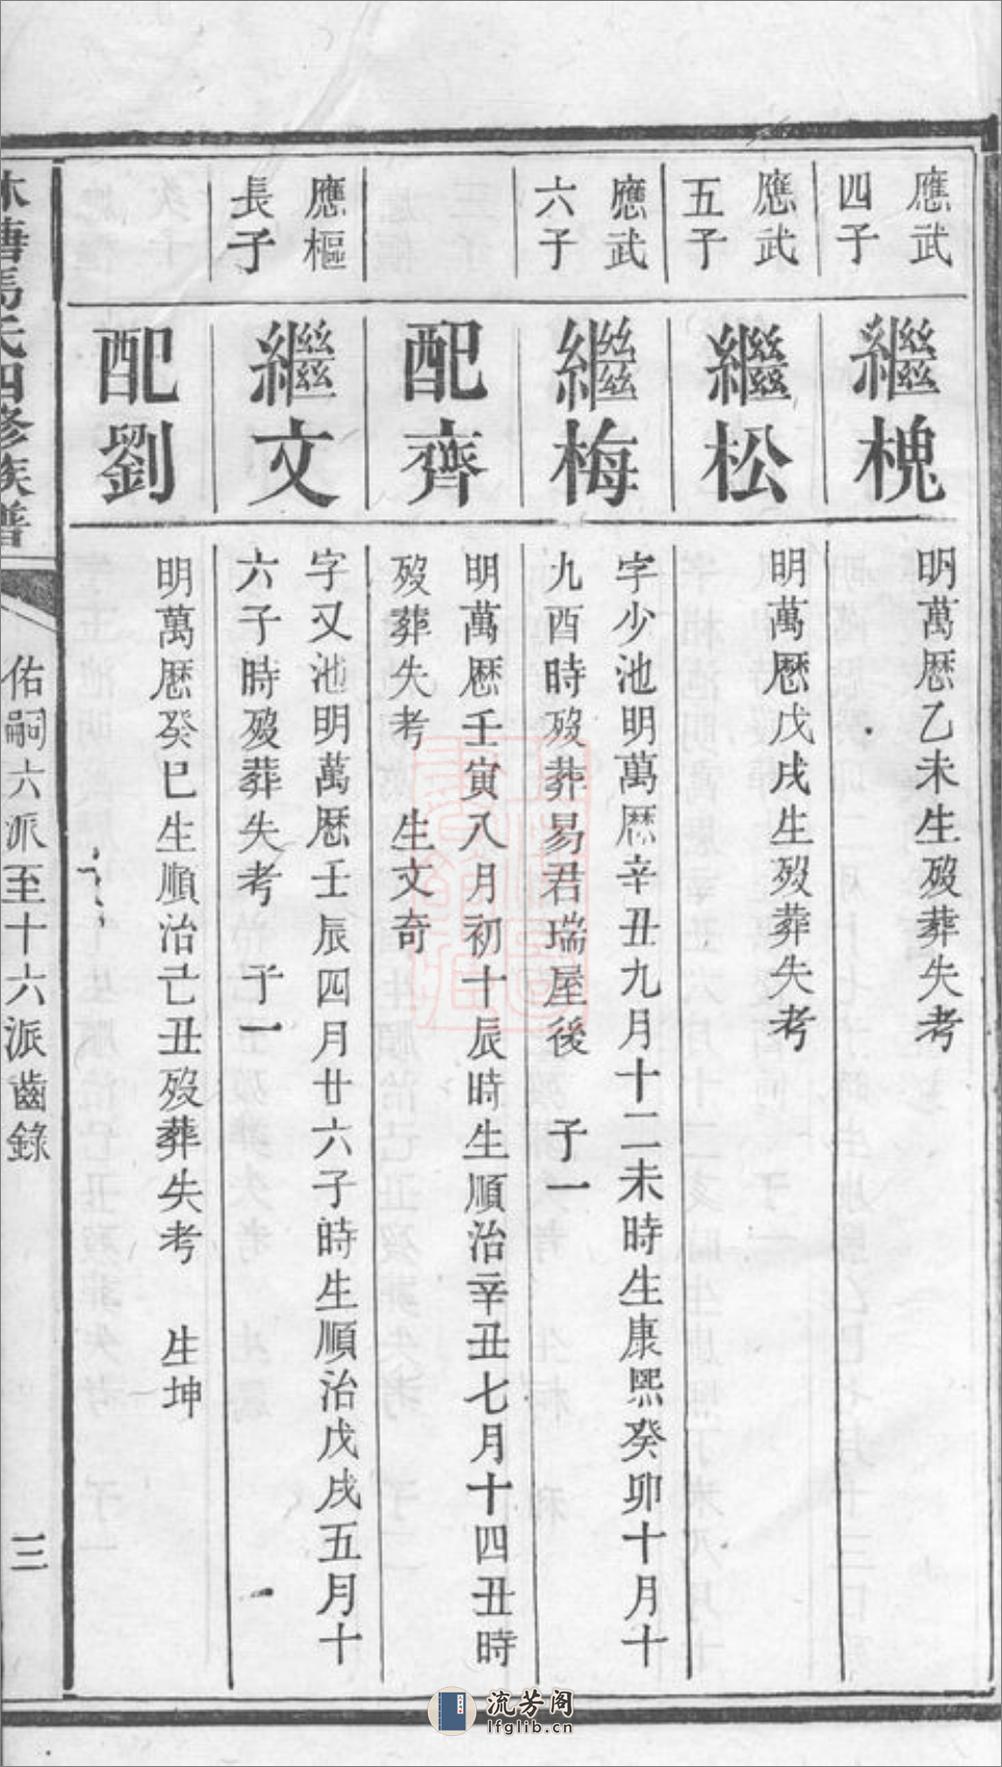 應武
四子
繼槐
明萬厯乙未生歿葬失考
應武
五子
繼松
明萬厯戊戌生歿葬失考
應武
六子
繼梅
字少池明萬厯辛丑九月十二未時生康熙癸卯十月十
九酉時歿葬易君瑞屋後　子一
配齊
明萬厯壬寅八月初十辰時生順治辛丑七月十四丑時
歿葬失考　生文奇
應樞
長子
繼文
字又池明萬厯壬辰四月廿六子時生順治戊戌五月十
六子時歿葬失考　子一
配劉
明萬厯癸巳生順治己丑歿葬失考　生坤
馬氏四修族譜
佑嗣六派至十六派齒錄
三
流芳阁
lfglib.cn